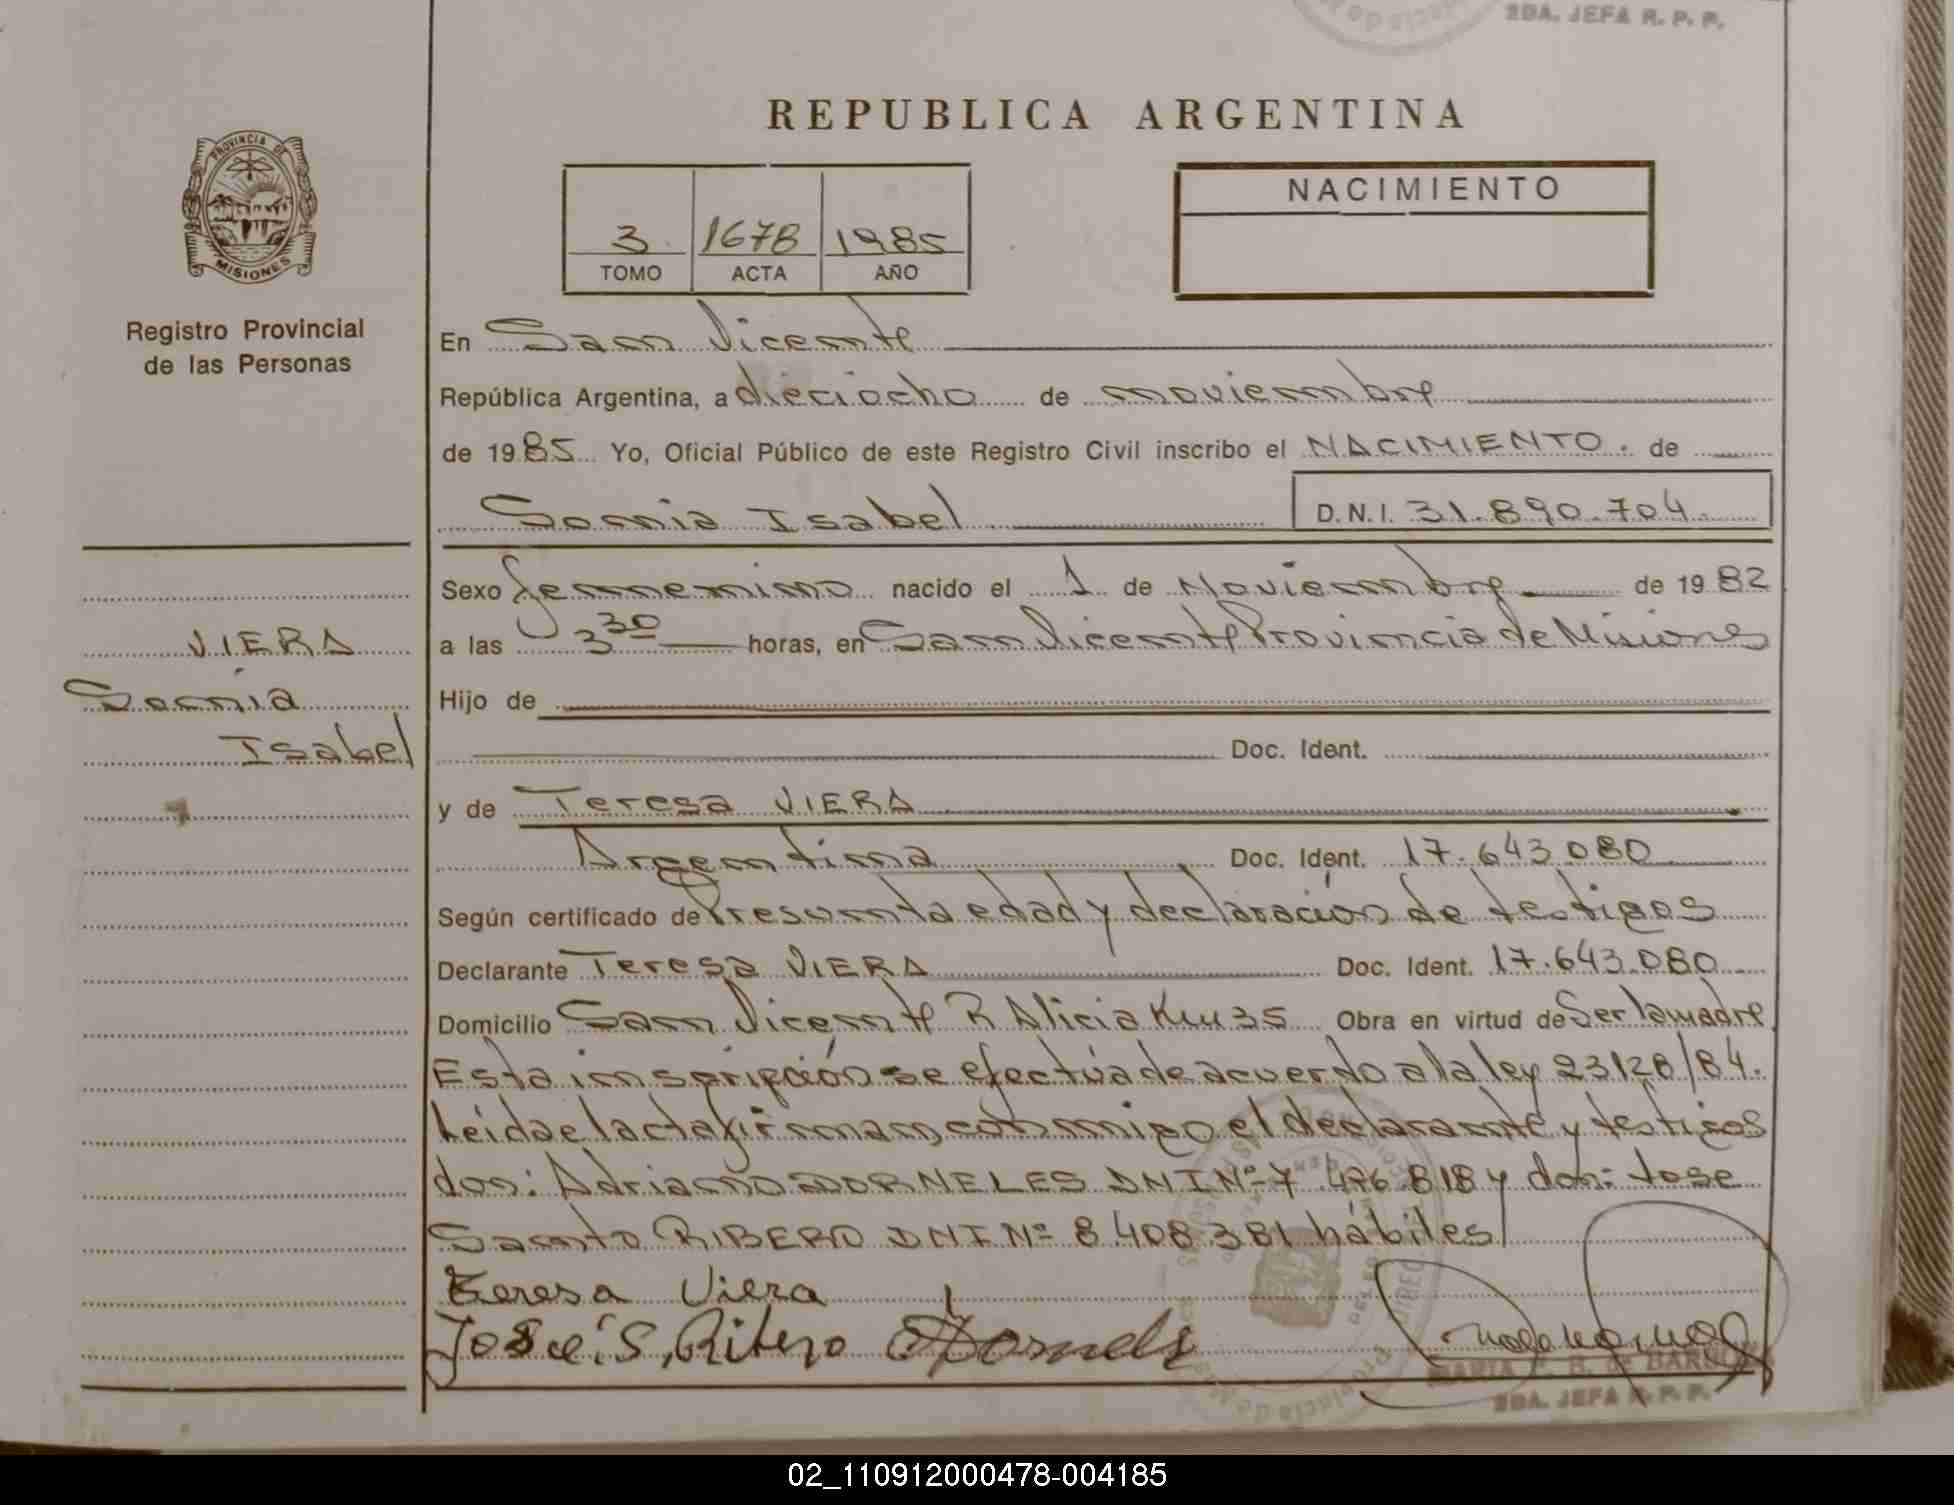 2DA. JEFA R. P. P.
REPUBLICA ARGENTINA
PROVINCIA DE
MISIONES
Registro Provincial
de las Personas
3 1678 1985
TOMO ACTA AÑO
NACIMIENTO
En San Vicente
República Argentina, a dieciocho de noviembre
de 1985 Yo, Oficial Público de este Registro Civil inscribo el NACIMIENTO. de
Sonia Isabel D.N.I. 31.890.704
VIERA
Sonia
Isabel
Sexo femenino nacido el 1 de Noviembre de 1982
a las 3 30 horas, en San Vicente Provincia de Misiones
Hijo de
Doc. Ident.
y de Teresa VIERA
Argentina Doc. Ident. 17.643.080
Según certificado de Presunta edad y declaración de testigos
Declarante Teresa VIERA Doc. Ident. 17.643.080
Domicilio San Vicente R Alicia Km 35 Obra en virtud de Ser la madre
Esta inscripción se efectúa de acuerdo a la ley 23128/84.
Leída el acta firman conmigo el declarante y testigos
don: Adriano DORNELES DNI Nº 7 476.818 y don: Jose
Santo RIBERO DNI Nº 8.408.381 hábiles
Teresa Viera
José S. Ribero
2DA. JEFA R. P. P.
02_110912000478-004185